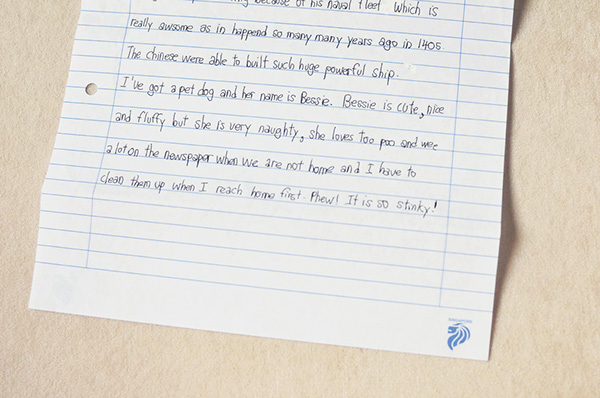 because of his naval fleet. Which is
really awsome as in happend so many many years ago in 1405.
The chinese were able to built such huge powerful ship.
I've got a pet dog and her name is Bessie. Bessie is cute, nice
and fluffy but she is very naughty, she loves too poo and wee
a lot on the newspaper when we are not home and I have to
clean them up when I reach home first. Phew! It is so stinky!